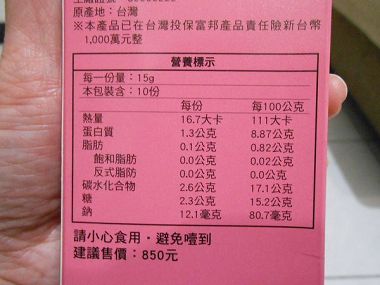 原產地：台灣
※本產品已在台灣投保富邦產品責任險新台幣
1,000萬元整
營養標示
每一份量：15g
本包裝含：10份
每份 每100公克
熱量 16.7大卡 111大卡
蛋白質 1.3公克 8.87公克
脂肪 0.1公克 0.82公克
飽和脂肪 0.0公克 0.02公克
反式脂肪 0.0公克 0.0公克
碳水化合物 2.6公克 17.1公克
糖 2.3公克 15.2公克
鈉 12.1毫克 80.7毫克
請小心食用，避免噎到
建議售價：850元